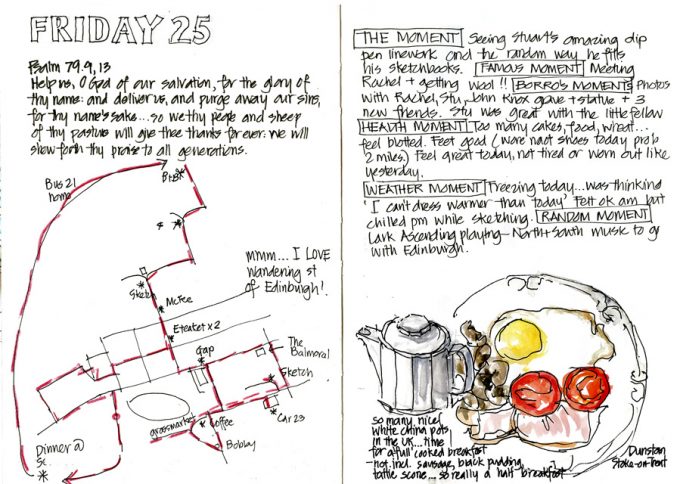 FRIDAY 25
Psalm 79.9,13
Help us, O God of our salvation, for the glory of
thy name: and deliver us, and purge away our sins,
for thy name's sake... so we thy people and sheep
of thy pasture will give thee thanks for ever: we will
shew forth thy praise to all generations.
Bus 21
home
Bus
Sketch
McFee
Eteaket x 2
mmm... I LOVE
wandering st
of Edinburgh!
Gap
The
Balmoral
Sketch
Car 23
grassmarket
Coffee
Bobby
Dinner @
Sc.
THE MOMENT Seeing Stuart's amazing dip
pen linework and the random way he fills
his sketchbooks. FAMOUS MOMENT Meeting
Rachel + getting wool!! BORRO'S MOMENTS Photos
with Rachel, Stu, John Knox gave + statue + 3
new friends. Stu was great with the little fellow
HEALTH MOMENT Too many cakes, food, wheat...
feel blotted. Feet good (wore naot shoes today prob
2 miles.) Feel great today, not tired or worn out like
yesterday.
WEATHER MOMENT Freezing today... was thinking
'I can't dress warmer than today' Felt ok am but
chilled pm while sketching. RANDOM MOMENT
Lark Ascending playing - North + South music to go
with Edinburgh.
so many nice
white china pots
in the UK... time
for a full cooked breakfast
not incl. sausage, black pudding,
tattie scone... so really a half breakfast
Dunstan
Stoke-on-Trent